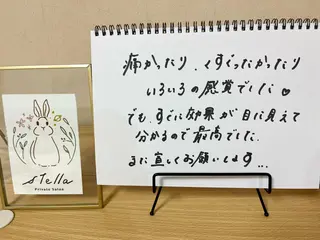 stella
Private Salon
痛かったり、くすぐったかったり
いろいろの感覚でした♥
でも、すぐに効果が目に見えて
分かるので最高でした。
また直してお願いします...